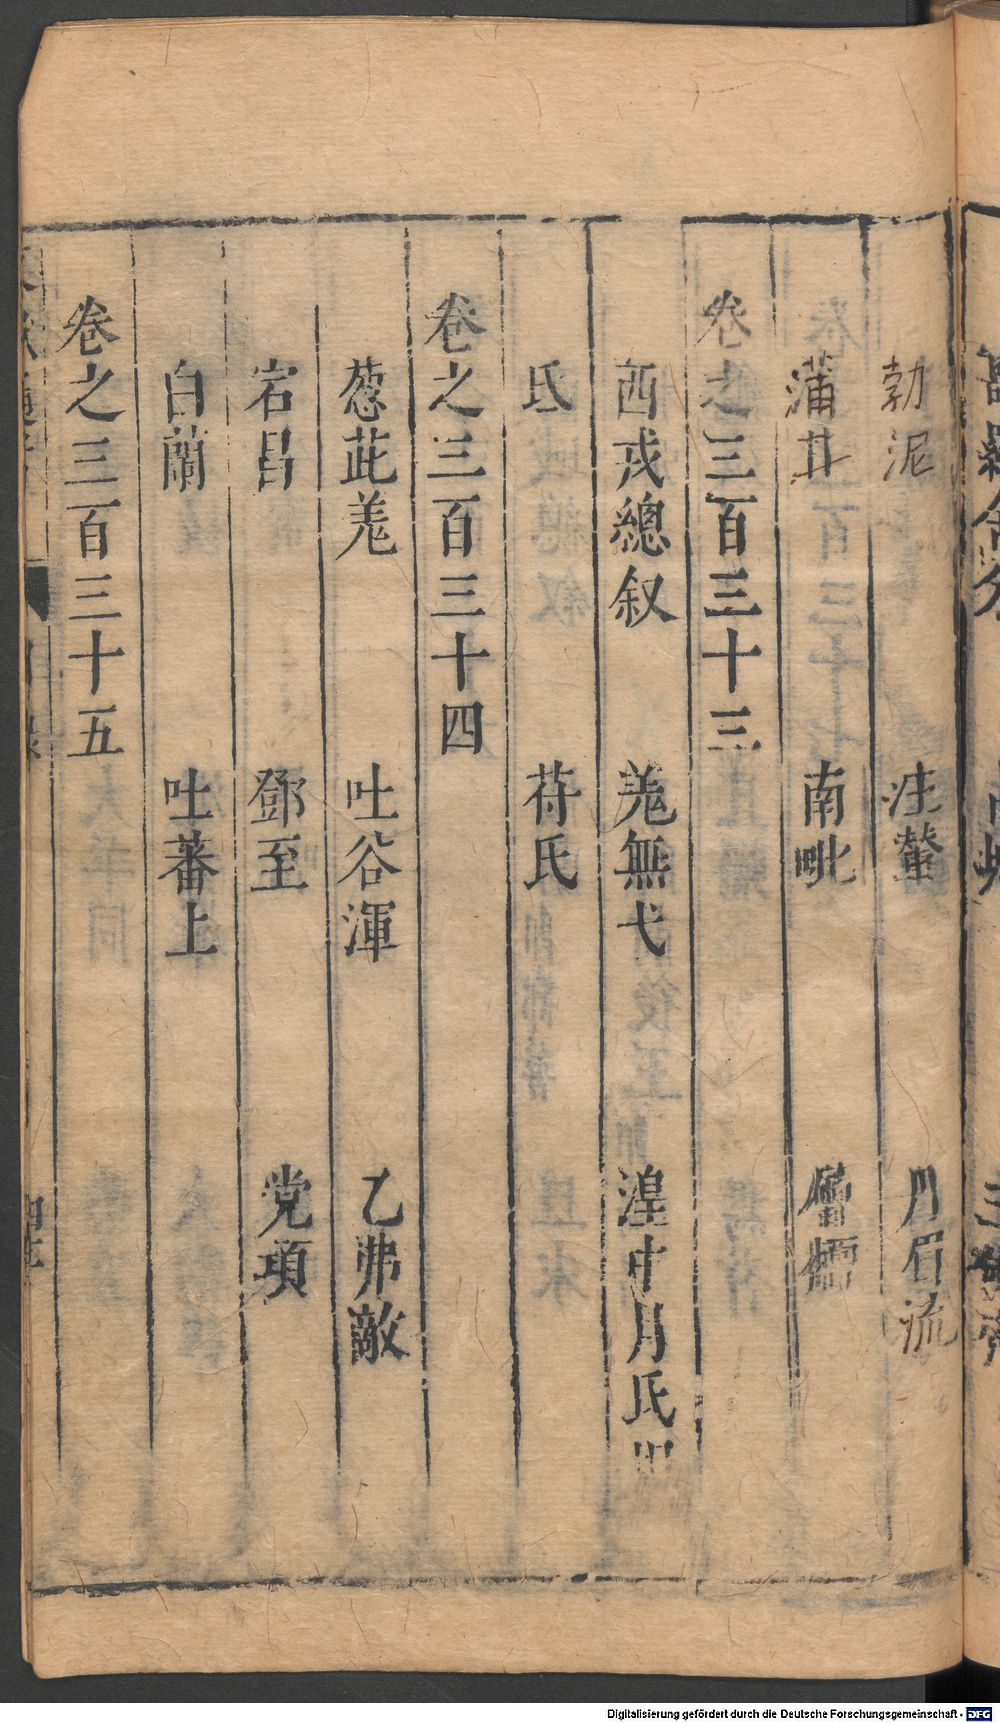 勃泥 注輦 丹眉流
蒲甘 南毗
卷之三百三十三
西戎總叙 羌無弋 湟中月氏胡
氐 苻氏
卷之三百三十四
葱茈羌 吐谷渾 乙弗敵
宕昌 鄧至 党項
白蘭 吐蕃上
卷之三百三十五
Digitalisierung gefördert durch die Deutsche Forschungsgemeinschaft - DFG